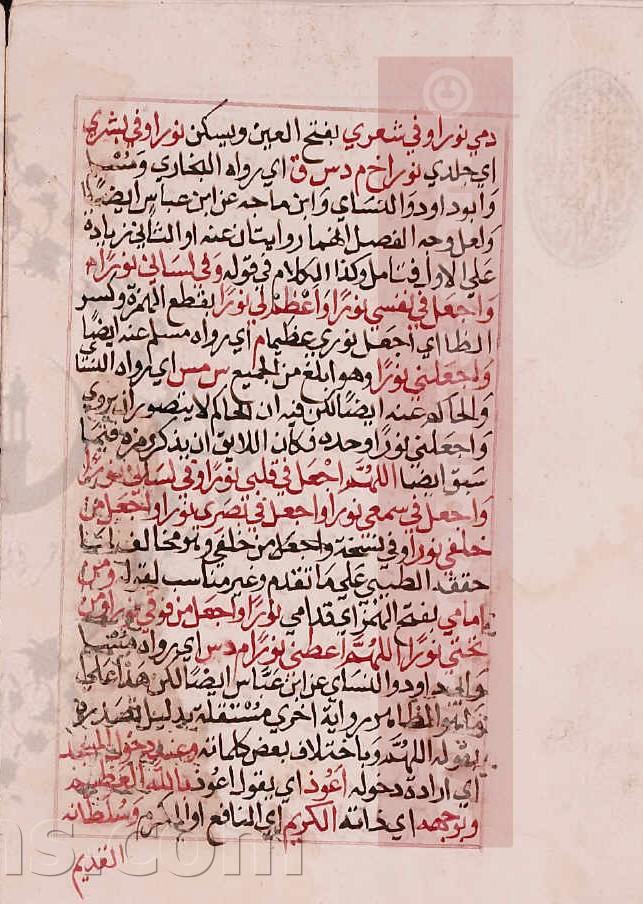 دمي نورا وفي شعري بفتح العين ويسكن نورا وفي بشري
اي جلدي نورا خ م د س ق اي رواه البخاري ومسلم
وابو داود والنساي وابن ماجه عن ابن عباس ايضا
ولعل وجه الفصل انهما روايتان عنه او الثاني زيادة
علي الاول فتامل وكذا الكلام في قوله وفي لساني نورا م
واجعل في نفسي نورا واعظم لي نورا بقطع الهمزة وكسر
الظا اي اجعل نوري عظيما م اي رواه مسلم عنه ايضا
واجعلني نورا وهو ابلغ من الجميع س مس اي رواه النساي
والحاكم عنه ايضا لكن فيه ان الحاكم لا يتصور ان يروي
واجعلني نورا وحده فكان اللايق ان يذكر رمزه فيما
سبق ايضا اللهم اجعل في قلبي نورا وفي لساني نورا
واجعل في سمعي نورا واجعل في بصري نورا واجعل من
خلفي نورا وفي نسخة واجعل من خلفي وهو مخالف
حققه الطيبي علي ما تقدم وغير مناسب لقوله ومن
امامي بفتح الهمز اي قدامي نورا واجعل من فوقي نورا ومن
تحتي نورا اللهم اعطني نورا م د س اي رواه مسلم
وابي داود والنساي عن ابن عباس ايضا لكن هذا علي
رواية اخري مستقلة بدليل تصديره
بقوله اللهم وباختلاف بعض كلماته وعند دخول المسجد
اي ارادة دخوله اعوذ اي يقول اعوذ بالله العظيم
وبوجهه اي ذاته الكريم اي النافع او المكرم وسلطانه
القديم
ns.com